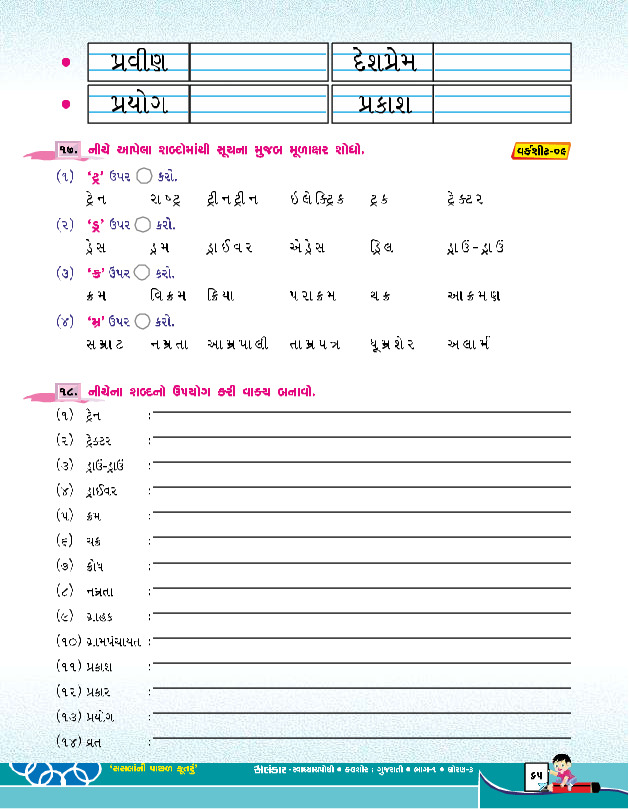 • પ્રવીણ દેશપ્રેમ
• પ્રયોગ પ્રકાશ
૧૭. નીચે આપેલા શબ્દોમાંથી સૂચના મુજબ મૂળાક્ષર શોધો. વર્કશીટ-૦૯
(૧) ‘ટ્ર’ ઉપર ◯ કરો.
ટ્રેન રાષ્ટ્ર ટ્રીનટ્રીન ઇલેક્ટ્રિક ટ્રક ટ્રેક્ટર
(૨) ‘ડ્ર’ ઉપર ◯ કરો.
ડ્રેસ ડ્રમ ડ્રાઈવર એડ્રેસ ડ્રિલ ડ્રાઉં-ડ્રાઉં
(૩) ‘ક્ર’ ઉપર ◯ કરો.
ક્રમ વિક્રમ ક્રિયા પરાક્રમ ચક્ર આક્રમણ
(૪) ‘મ્ર’ ઉપર ◯ કરો.
સમ્રાટ નમ્રતા આમ્રપાલી તામ્રપત્ર ધૂમ્રશેર અલાર્મ
૧૮. નીચેના શબ્દનો ઉપયોગ કરી વાક્ય બનાવો.
(૧) ટ્રેન :
(૨) ટ્રેક્ટર :
(૩) ડ્રાઉં-ડ્રાઉં :
(૪) ડ્રાઈવર :
(૫) ક્રમ :
(૬) ચક્ર :
(૭) ક્રોધ :
(૮) નમ્રતા :
(૯) ગ્રાહક :
(૧૦) ગ્રામપંચાયત :
(૧૧) પ્રકાશ :
(૧૨) પ્રકાર :
(૧૩) પ્રયોગ :
(૧૪) વ્રત :
‘સસલાંની પાછળ કૂતરું’ અલંકાર - સ્વાધ્યાયપોથી • કલશોર : ગુજરાતી • ભાગ-૧ • ધોરણ-૩ ૬૫